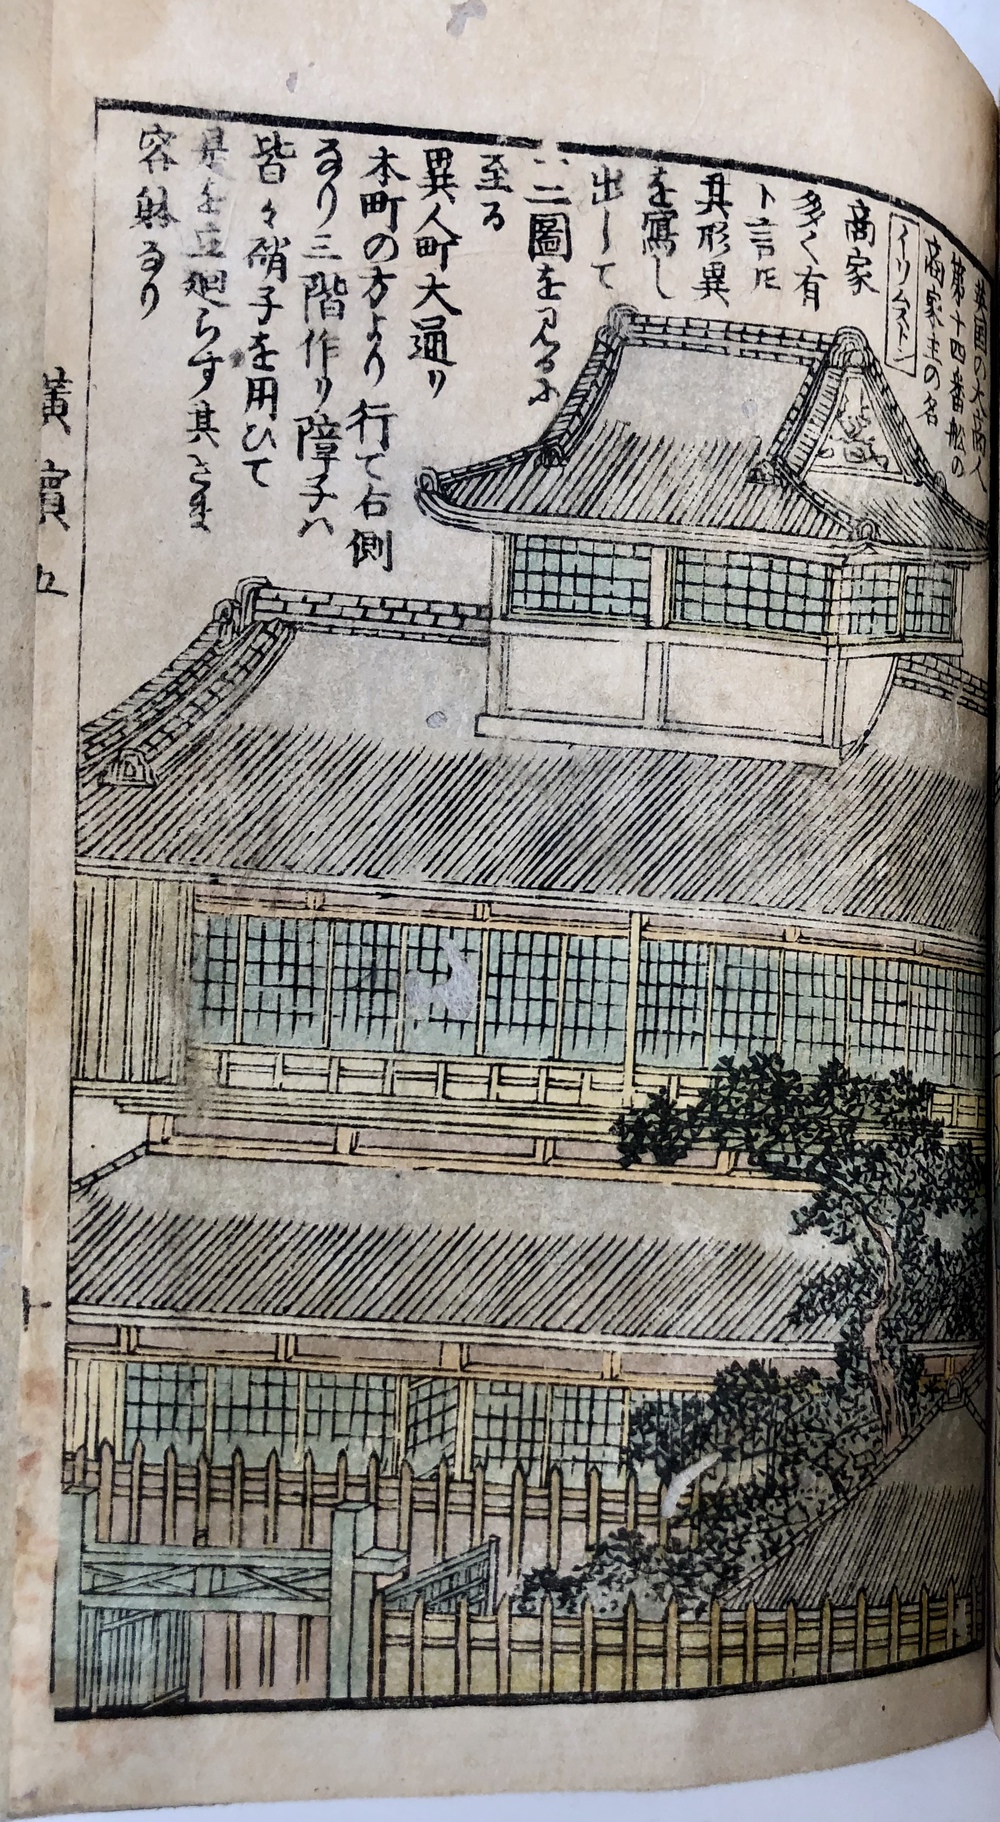 英国の大商人
第十四番舩の
商家主の名
イリムストン
商家
多く有
ト言㐂
其形異
を寫し
出して
二圖を見るに
至る
異人町大通り
本町の方より行て右側
なり三階作り障子ハ
皆々硝子を用ひて
是を立廻らす其さま
容躰なり
横濱 五
十